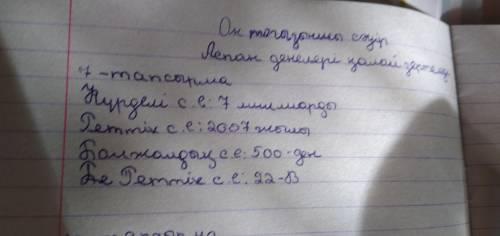 Он тоғызыншы сәуір
Аспан денелері қалай зерттелед
7-тапсырма
Күрделі с.е: 7 миллиарды
Реттік с.е: 2007 жылы
Болжалдық с.е: 500-ден
Бө Реттік с.е: 22-В